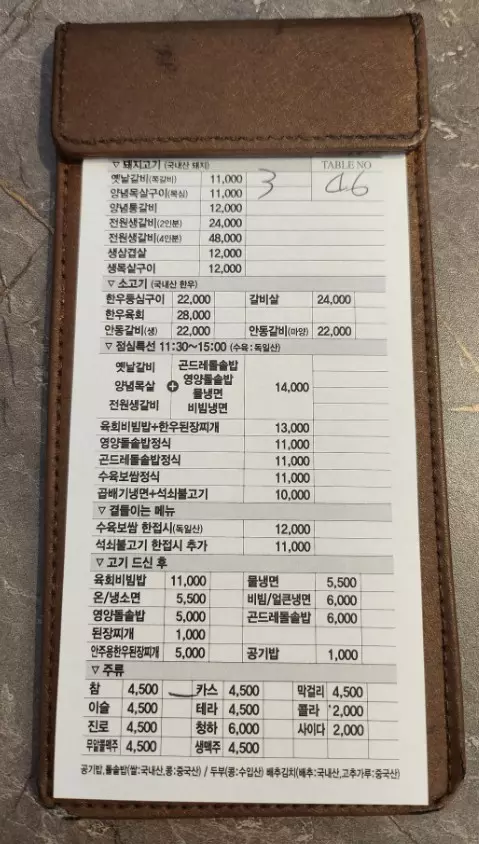 ▽ 돼지고기 (국내산 돼지) TABLE NO
옛날갈비(쪽갈비) 11,000 3 46
양념목살구이(목심) 11,000
양념통갈비 12,000
전원생갈비(2인분) 24,000
전원생갈비(4인분) 48,000
생삼겹살 12,000
생목살구이 12,000
▽ 소고기 (국내산 한우)
한우등심구이 22,000 갈비살 24,000
한우육회 28,000
안동갈비(생) 22,000 안동갈비(마양) 22,000
▽ 점심특선 11:30~15:00 (수육:독일산)
옛날갈비 곤드레돌솥밥
양념목살 + 영양돌솥밥 14,000
물냉면
전원생갈비 비빔냉면
육회비빔밥+한우된장찌개 13,000
영양돌솥밥정식 11,000
곤드레돌솥밥정식 11,000
수육보쌈정식 11,000
곱배기냉면+석쇠불고기 10,000
▽ 곁들이는 메뉴
수육보쌈 한접시(독일산) 12,000
석쇠불고기 한접시 추가 11,000
▽ 고기 드신 후
육회비빔밥 11,000 물냉면 5,500
온/냉소면 5,500 비빔/얼큰냉면 6,000
영양돌솥밥 5,000 곤드레돌솥밥 6,000
된장찌개 1,000
안주용한우된장찌개 5,000 공기밥 1,000
▽ 주류
참 4,500 카스 4,500 막걸리 4,500
이슬 4,500 테라 4,500 콜라 2,000
진로 4,500 청하 6,000 사이다 2,000
무알콜맥주 4,500 생맥주 4,500
공기밥,돌솥밥(쌀:국내산,콩:중국산) / 두부(콩:수입산) 배추김치(배추:국내산,고추가루:중국산)